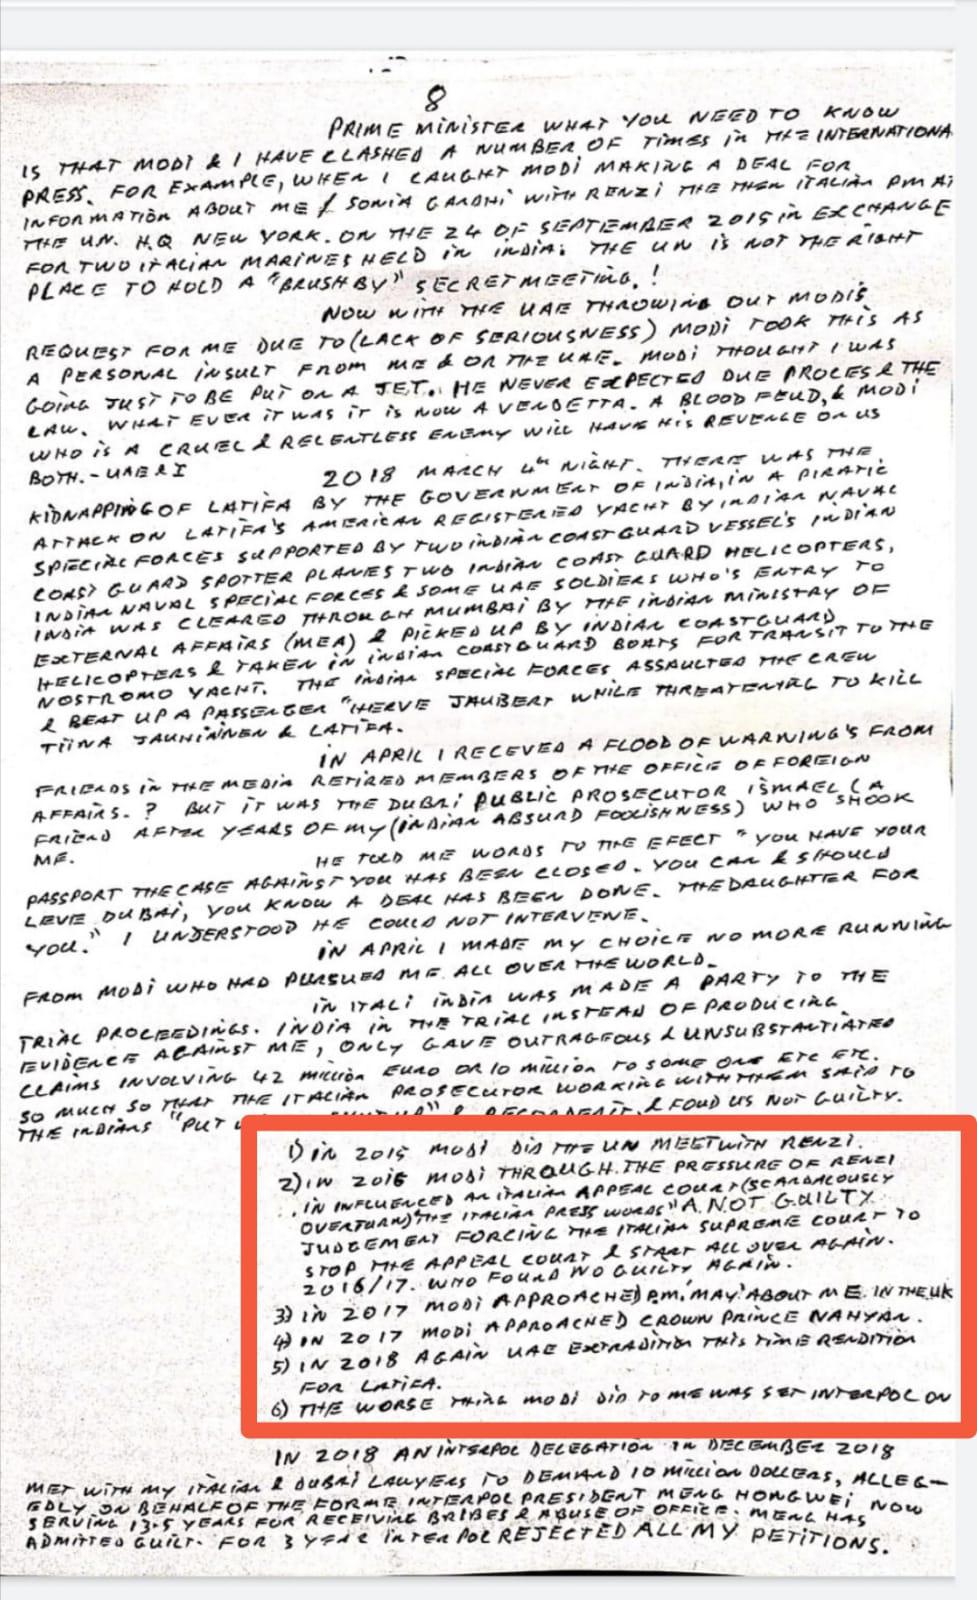 8
PRIME MINISTER WHAT YOU NEED TO KNOW
IS THAT MODI & I HAVE CLASHED A NUMBER OF TIMES IN THE INTERNATIONA
PRESS. FOR EXAMPLE, WHEN I CAUGHT MODI MAKING A DEAL FOR
INFORMATION ABOUT ME / SONIA GANDHI WITH RENZI THE THEN ITALIAN PM AT
THE U.N. H.Q NEW YORK. ON THE 24 OF SEPTEMBER 2015 IN EXCHANGE
FOR TWO ITALIAN MARINES HELD IN INDIA. THE UN IS NOT THE RIGHT
PLACE TO HOLD A "BRUSH BY" SECRET MEETING.!
NOW WITH THE UAE THROWING OUT MODIS
REQUEST FOR ME DUE TO (LACK OF SERIOUSNESS) MODI TOOK THIS AS
A PERSONAL INSULT FROM ME & OR THE UAE. MODI THOUGHT I WAS
GOING JUST TO BE PUT ON A JET. HE NEVER EXPECTED DUE PROCES & THE
LAW. WHAT EVER IT WAS IT IS NOW A VENDETTA. A BLOOD FEUD, & MODI
WHO IS A CRUEL & RELENTLESS ENEMY WILL HAVE HIS REVENGE ON US
BOTH.- UAE & I
2018 MARCH 4th NIGHT. THERE WAS THE
KIDNAPPING OF LATIFA BY THE GOVERNMENT OF INDIA, IN A PIRATIC
ATTACK ON LATIFA'S AMERICAN REGISTERED YACHT BY INDIAN NAVAL
SPECIAL FORCES SUPPORTED BY TWO INDIAN COAST GUARD VESSEL'S INDIAN
COAST GUARD SPOTTER PLANES TWO INDIAN COAST GUARD HELICOPTERS,
INDIAN NAVAL SPECIAL FORCES & SOME UAE SOLDIERS WHO'S ENTRY TO
INDIA WAS CLEARED THROUGH MUMBAI BY THE INDIAN MINISTRY OF
EXTERNAL AFFAIRS (MEA) & PICKED UP BY INDIAN COASTGUARD
HELICOPTERS & TAKEN IN INDIAN COASTGUARD BOATS FOR TRANSIT TO THE
NOSTROMO YACHT. THE INDIAN SPECIAL FORCES ASSAULTED THE CREW
& BEAT UP A PASSENGER "HERVE JAUBERT WHILE THREATENING TO KILL
TIINA JAUHIANNEN & LATIFA.
IN APRIL I RECEVED A FLOOD OF WARNING'S FROM
FRIENDS IN THE MEDIA RETIRED MEMBERS OF THE OFFICE OF FOREIGN
AFFAIRS. ? BUT IT WAS THE DUBAI PUBLIC PROSECUTOR ISMAEL (A
FRIEND AFTER YEARS OF MY (INDIAN ABSURD FOOLISHNESS) WHO SHOOK
ME.
HE TOLD ME WORDS TO THE EFFECT "YOU HAVE YOUR
PASSPORT THE CASE AGAINST YOU HAS BEEN CLOSED. YOU CAN & SHOULD
LEVE DUBAI, YOU KNOW A DEAL HAS BEEN DONE. THE DAUGHTER FOR
YOU." I UNDERSTOOD HE COULD NOT INTERVENE.
IN APRIL I MADE MY CHOICE NO MORE RUNNING
FROM MODI WHO HAD PURSUED ME ALL OVER THE WORLD.
IN ITALI INDIA WAS MADE A PARTY TO THE
TRIAL PROCEEDINGS. INDIA IN THE TRIAL INSTEAD OF PRODUCING
EVIDENCE AGAINST ME, ONLY GAVE OUTRAGEOUS & UNSUBSTANTIATED
CLAIMS INVOLVING 42 MILLION EURO OR 10 MILLION TO SOME ONE ETC ETC.
SO MUCH SO THAT THE ITALIAN PROSECUTOR WORKING WITH THEM SAID TO
THE INDIANS "PUT UP" & & FOUD US NOT GUILTY.
1) IN 2015 MODI DID THE UN MEET WITH RENZI.
2) IN 2016 MODI THROUGH THE PRESSURE OF RENZI
IN INFLUENCED AN ITALIAN APPEAL COURT (SCANDALOUSLY
OVERTURN) "THE ITALIAN PRESS WORDS" A NOT GUILTY
JUDGEMENT FORCING THE ITALIAN SUPREME COURT TO
STOP THE APPEAL COURT & START ALL OVER AGAIN.
2016/17. WHO FOUND NO GUILTY AGAIN.
3) IN 2017 MODI APPROACHED P.M. MAY ABOUT ME IN THE UK
4) IN 2017 MODI APPROACHED CROWN PRINCE NAHYAN.
5) IN 2018 AGAIN UAE EXTRADITION THIS TIME RENDITION
FOR LATIFA.
6) THE WORSE THING MODI DID TO ME WAS SET INTERPOL ON
IN 2018 AN INTERPOL DELEGATION IN DECEMBER 2018
MET WITH MY ITALIAN & DUBAI LAWYERS TO DEMAND 10 MILLION DOLLERS, ALLEG-
EDLY ON BEHALF OF THE FORME INTERPOL PRESIDENT MENG HONGWEI NOW
SERVING 13.5 YEARS FOR RECEIVING BRIBES & ABUSE OF OFFICE. MENG HAS
ADMITTED GUILT. FOR 3 YEAR INTERPOL REJECTED ALL MY PETITIONS.